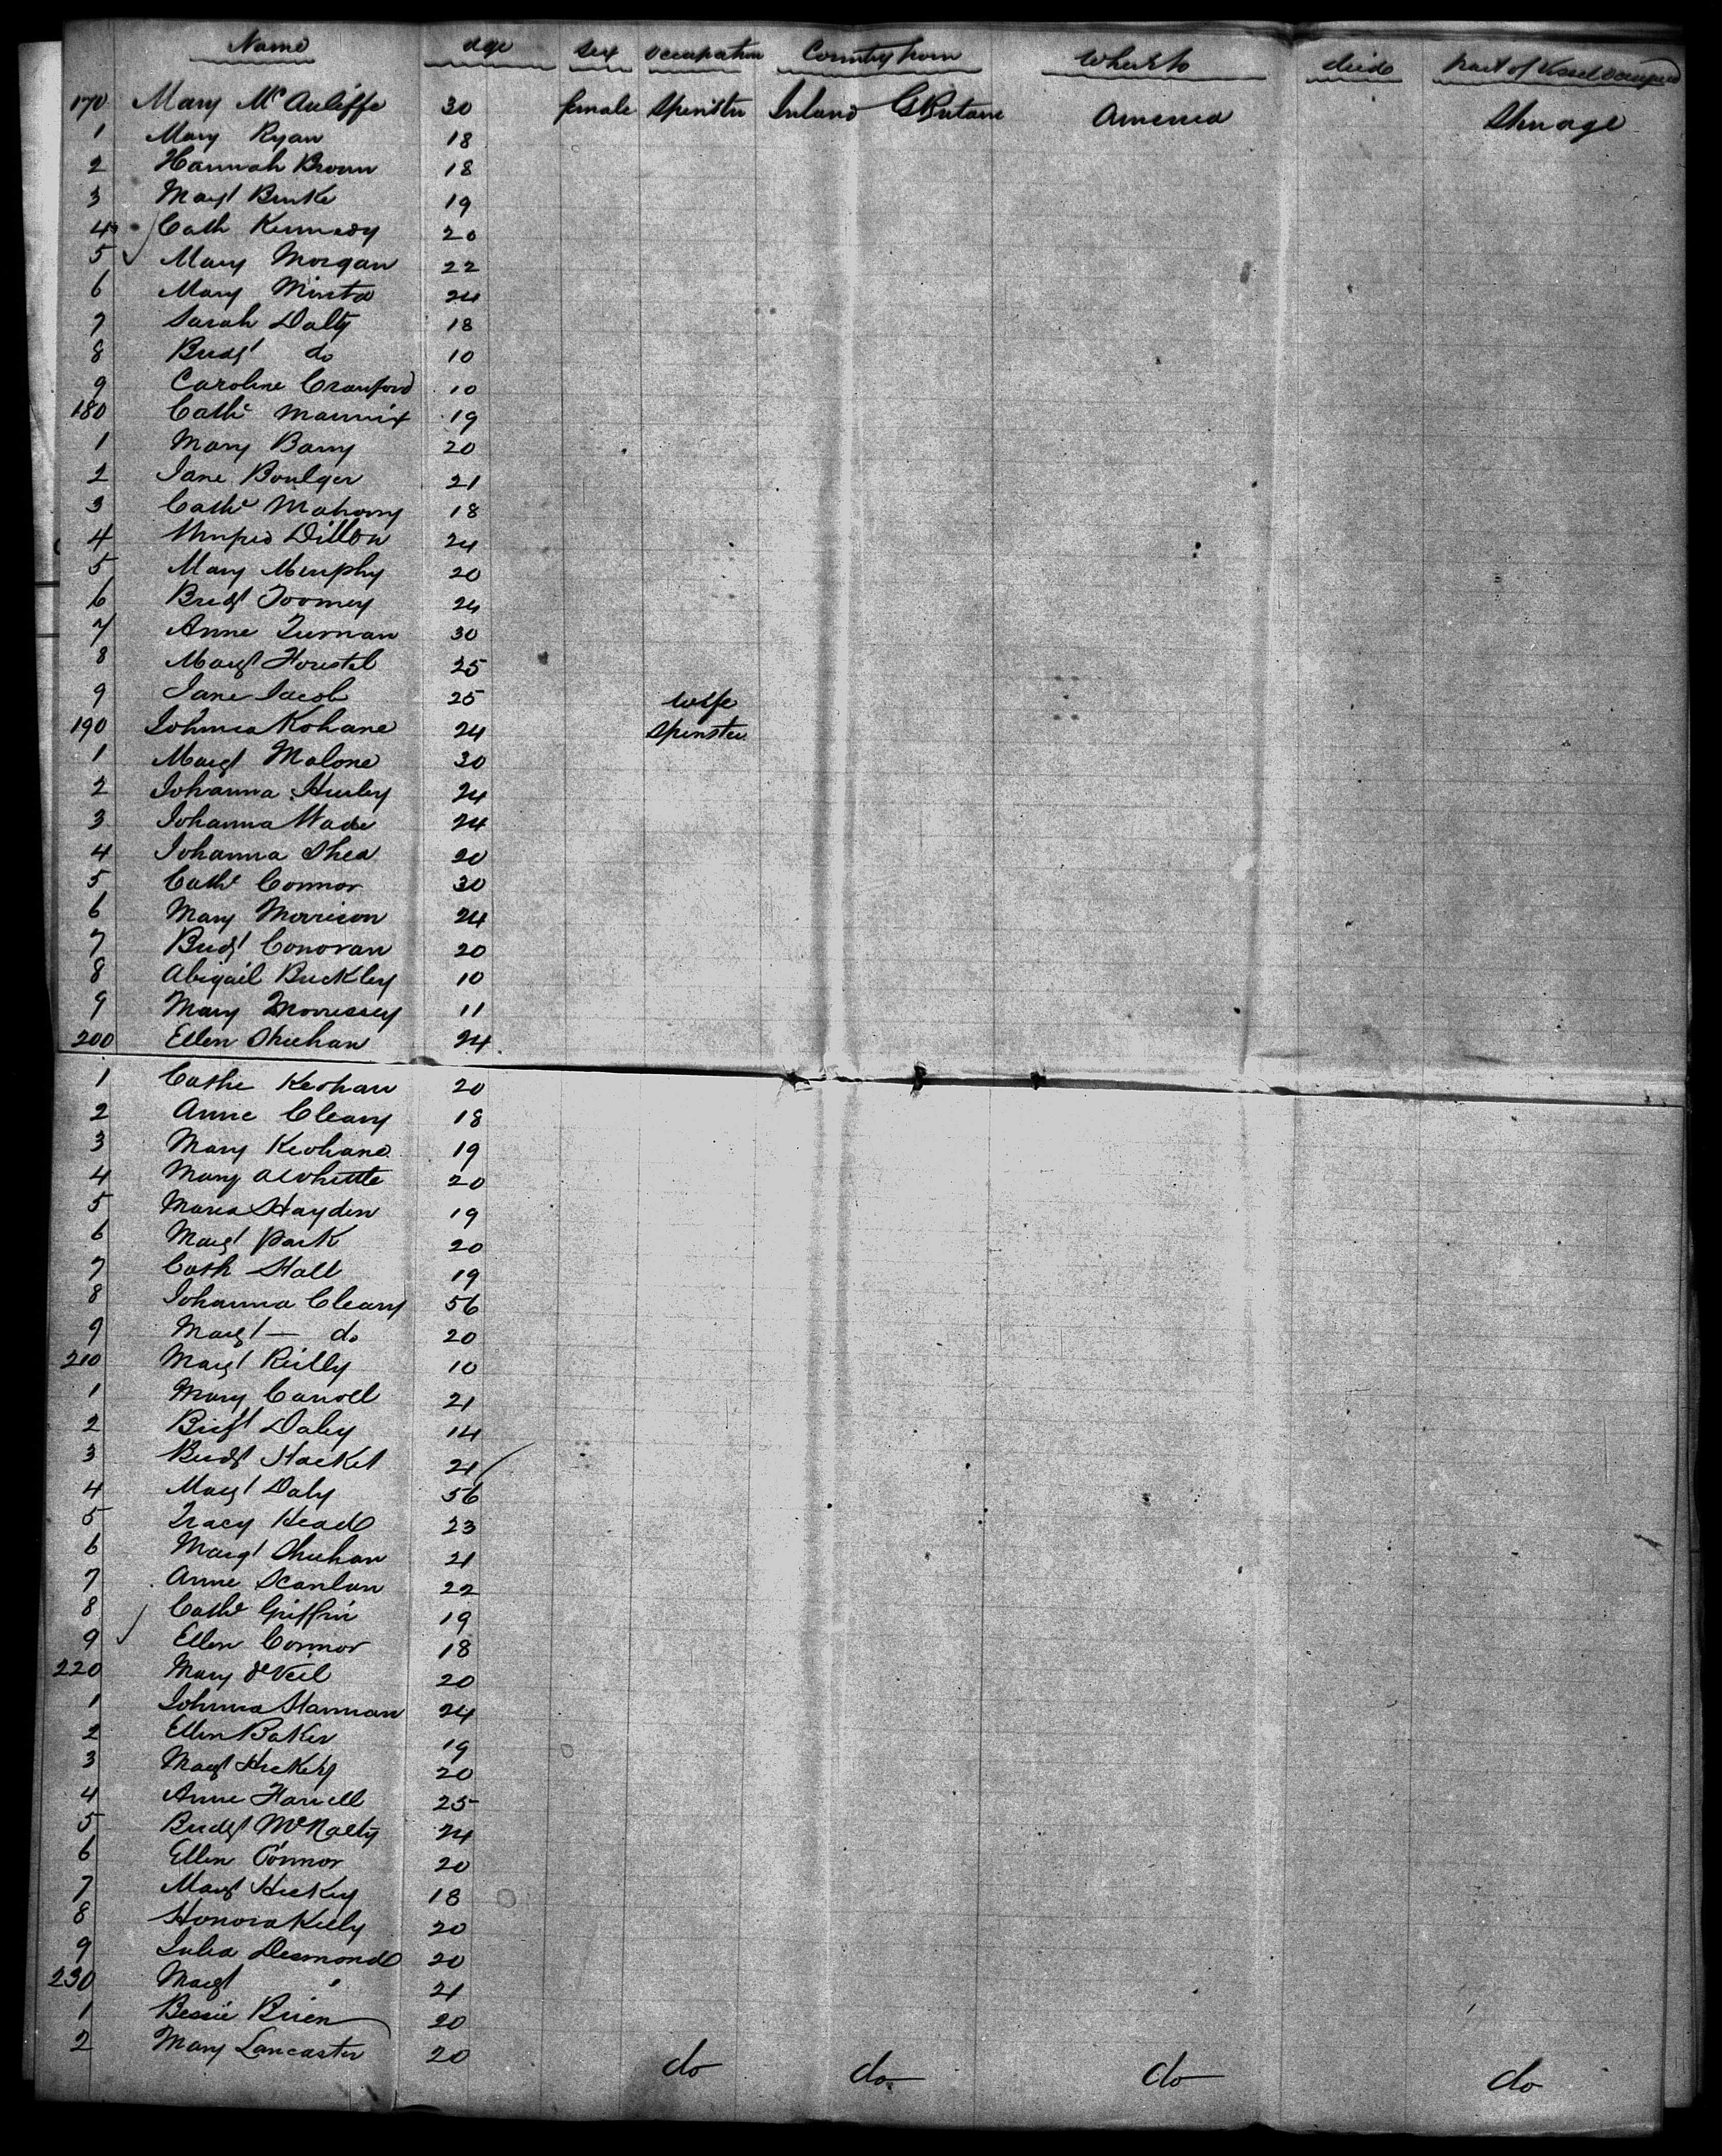 Name age sex occupation Country from Where to died Part of Vessel occupied
170 Mary McAuliffe 30 female Spinster Ireland G Britain America Steerage
1 Mary Ryan 18
2 Hannah Brown 18
3 Margt Burke 19
4 Cath Kennedy 20
5 Mary Morgan 22
6 Mary 24
7 Sarah Daly 18
8 Bridgt do 10
9 Caroline Crawford 10
180 Cathe Mannix 19
1 Mary Barry 20
2 Jane Boulger 21
3 Cathe Mahony 18
4 Dillon 24
5 Mary Murphy 20
6 Bridgt Toomey 24
7 Anne 30
8 Margt 25
9 Jane Jacob 25 wife
190 Johnna Kohane 24 Spinster
1 Margt Malone 30
2 Johanna Hurley 24
3 Johanna Wade 24
4 Johanna Shea 20
5 Cathe Connor 30
6 Mary Morrison 24
7 Bridgt Conovan 20
8 Abigail Buckley 10
9 Mary Morrissey 11
200 Ellen Sheehan 24
1 Cathe Keohan 20
2 Anne Cleary 18
3 Mary Keohane 19
4 Mary 20
5 Maria Hayden 19
6 Margt Park 20
7 Cath Hall 19
8 Johanna Cleary 56
9 Margt — do 20
210 Margt Reilly 10
1 Mary Carroll 21
2 Bridgt Daley 14
3 Bridgt Hacket 21
4 Margt Daly 56
5 Tracy Head 23
6 Margt Sheehan 21
7 Anne Scanlan 22
8 Cathe Griffin 19
9 Ellen Connor 18
220 Mary O'Neil 20
1 Johnna Hannan 24
2 Ellen Baker 19
3 Margt Hickey 20
4 Anne Farrell 25
5 Bridgt McNalty 24
6 Ellen Connor 20
7 Margt Hickey 18
8 Honora Kiely 20
9 Julia Desmond 20
230 Margt " 21
1 Bessie Brien 20
2 Mary Lancaster 20 do do do do